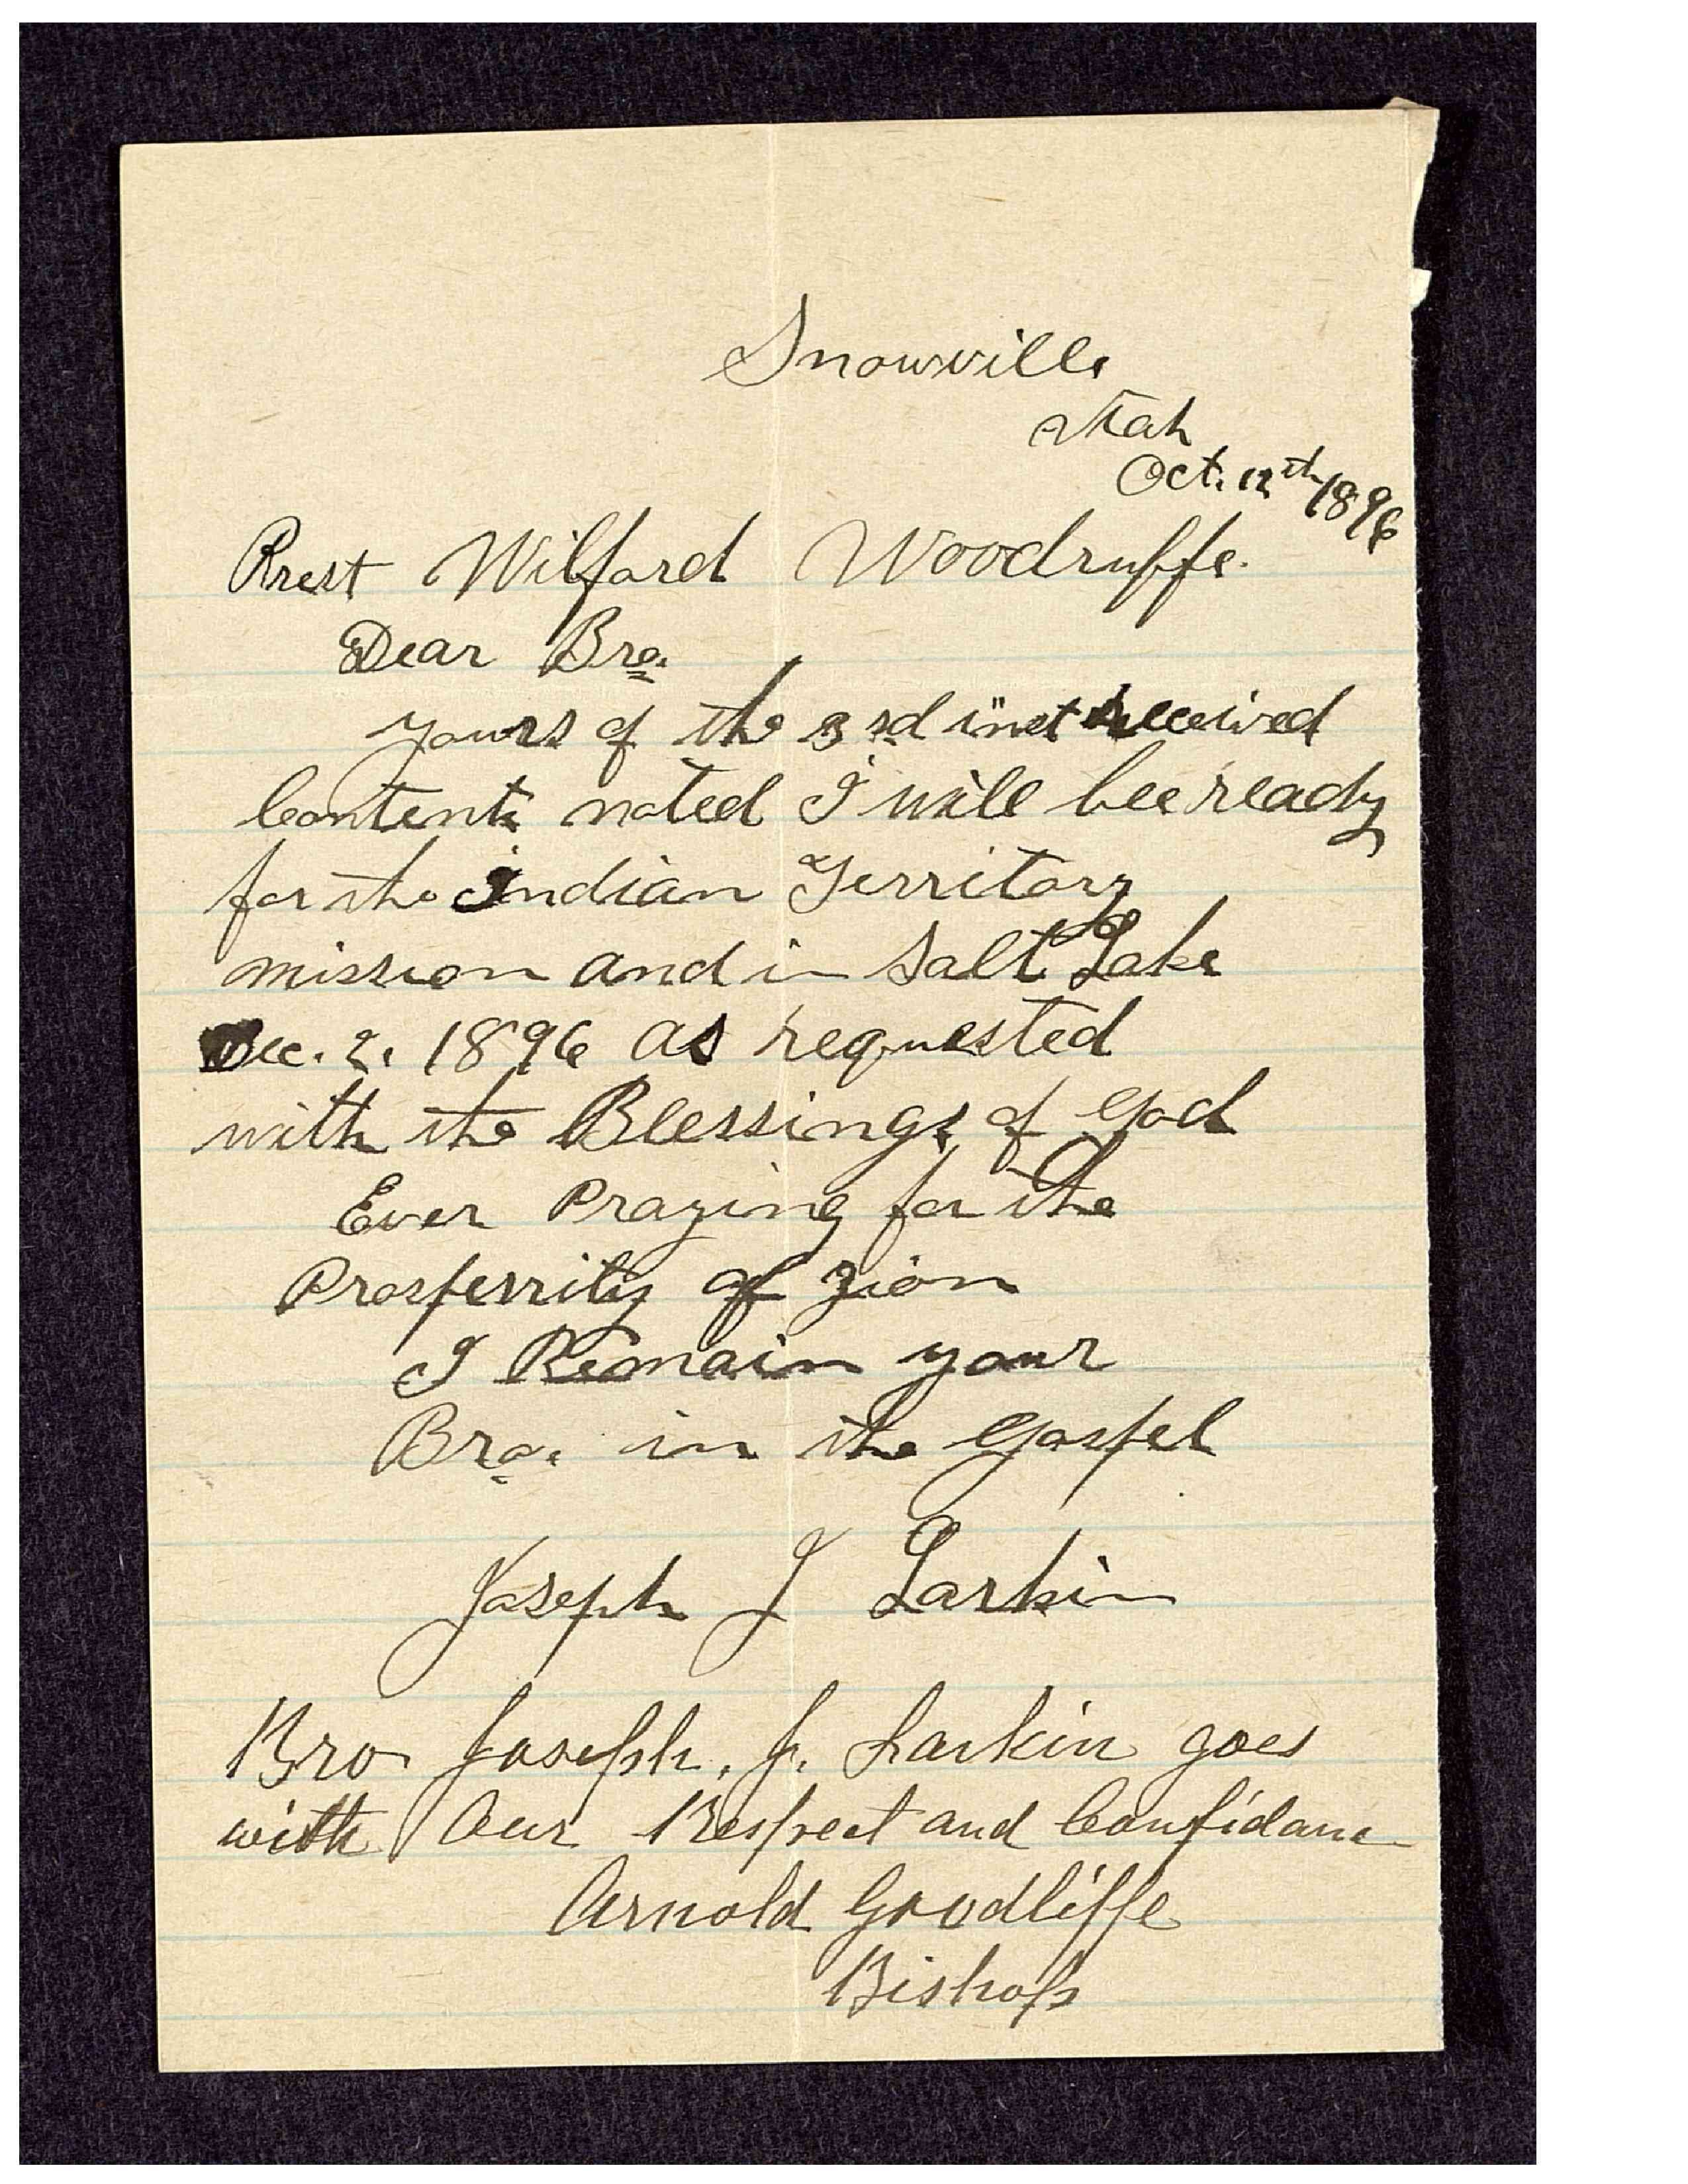 Snowville
Utah
Oct. 12th 1896
Prest Wilford Woodruffe.
Dear Bro.
yours of the 3rd inst received
Contents noted I will bee ready
for the Indian Territory
mission and in Salt Lake
Dec. 2. 1896 as requested
with the Blessings of God
Ever Praying for the
Prosperrity of Zion
I Remain your
Bro. in the Gospel
Joseph J Larkin
Bro Joseph. J. Larkin goes
with Our Respect and Confidance
Arnold Goodliffe
Bishop